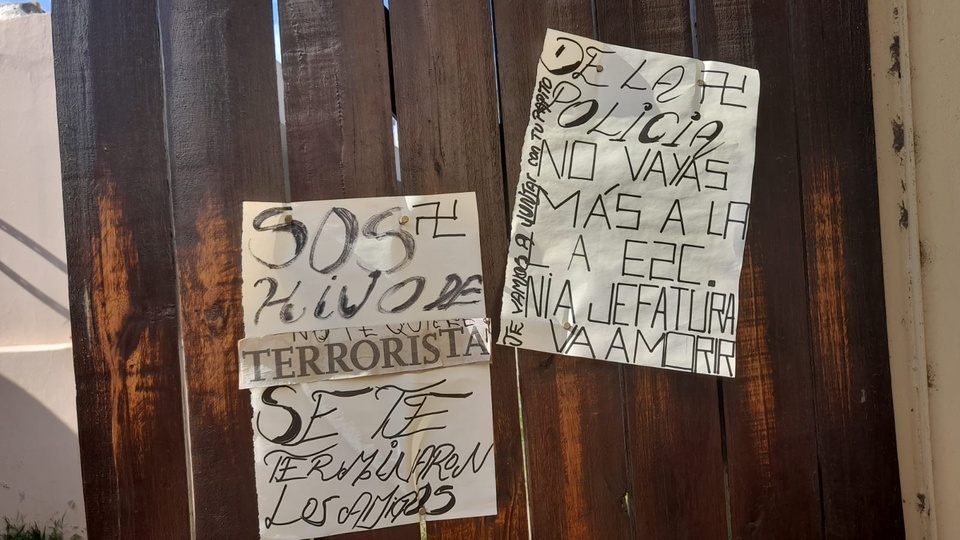 SOS 卍
HiJO DE
NO TE QUIERE
TERRORISTA
SE TE
TERMiNARON
LOS AMiGOS
DE LA 卍
POLiCiA
NO VAYAS
MÁS A LA
L A ESC.
NiA JEFATURA
VA A MORIR
TE VAMOS A JUNTAR CON TU PAPITO